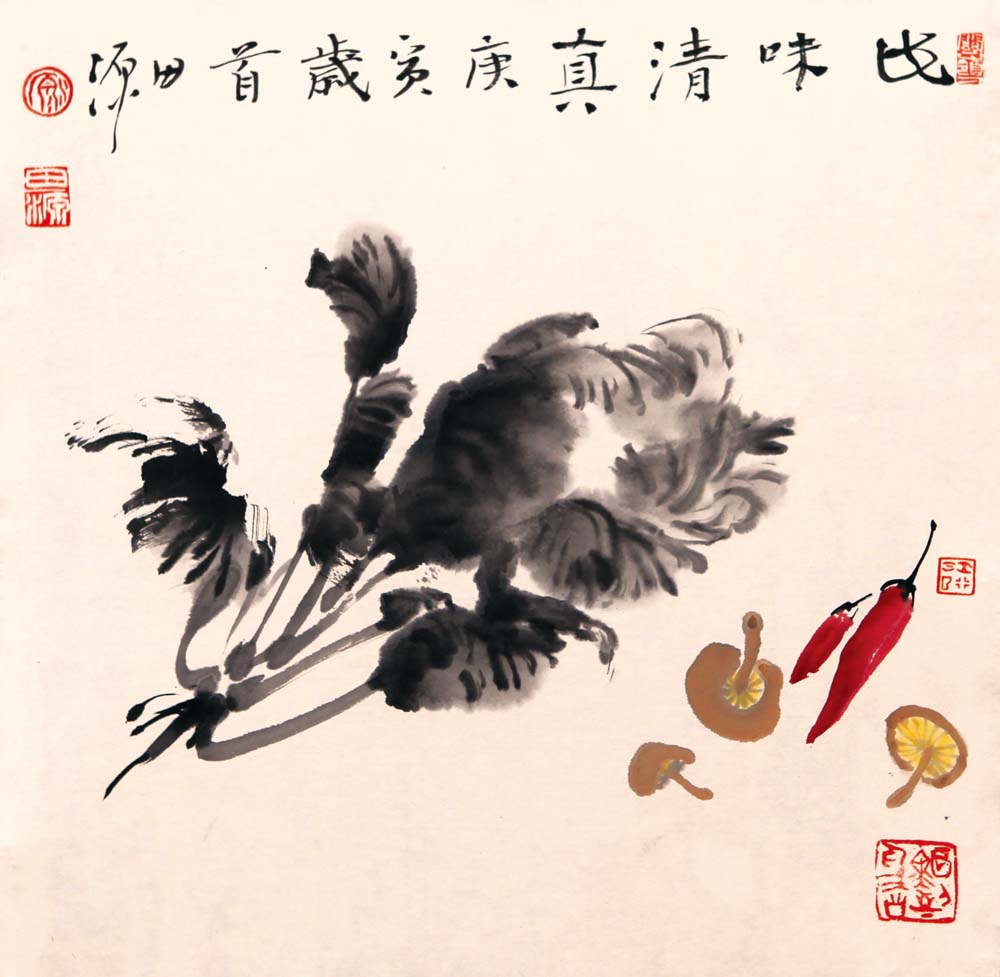 此味清真庚寅歲首田源
田源